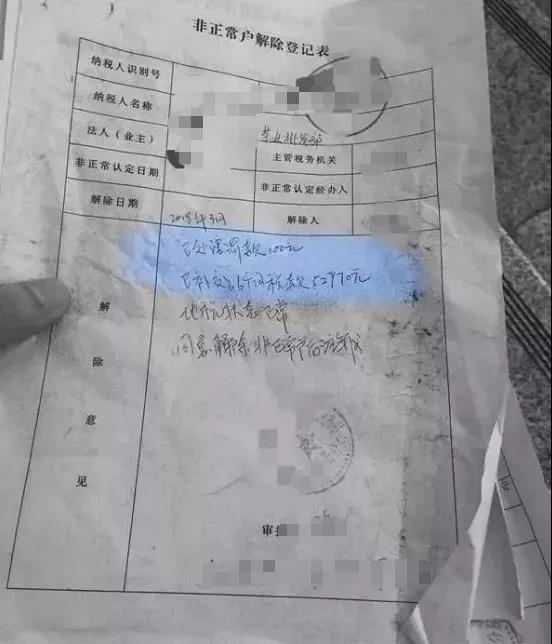 非正常户解除登记表
纳税人识别号
纳税人名称
法人（业主） 批发部 主管税务机关
非正常认定日期 非正常认定经办人
解除日期 解除人
已处理罚款100元
已补交 税款52970元
地税状态正常
同意解除非正常户后注销
解除意见
审批